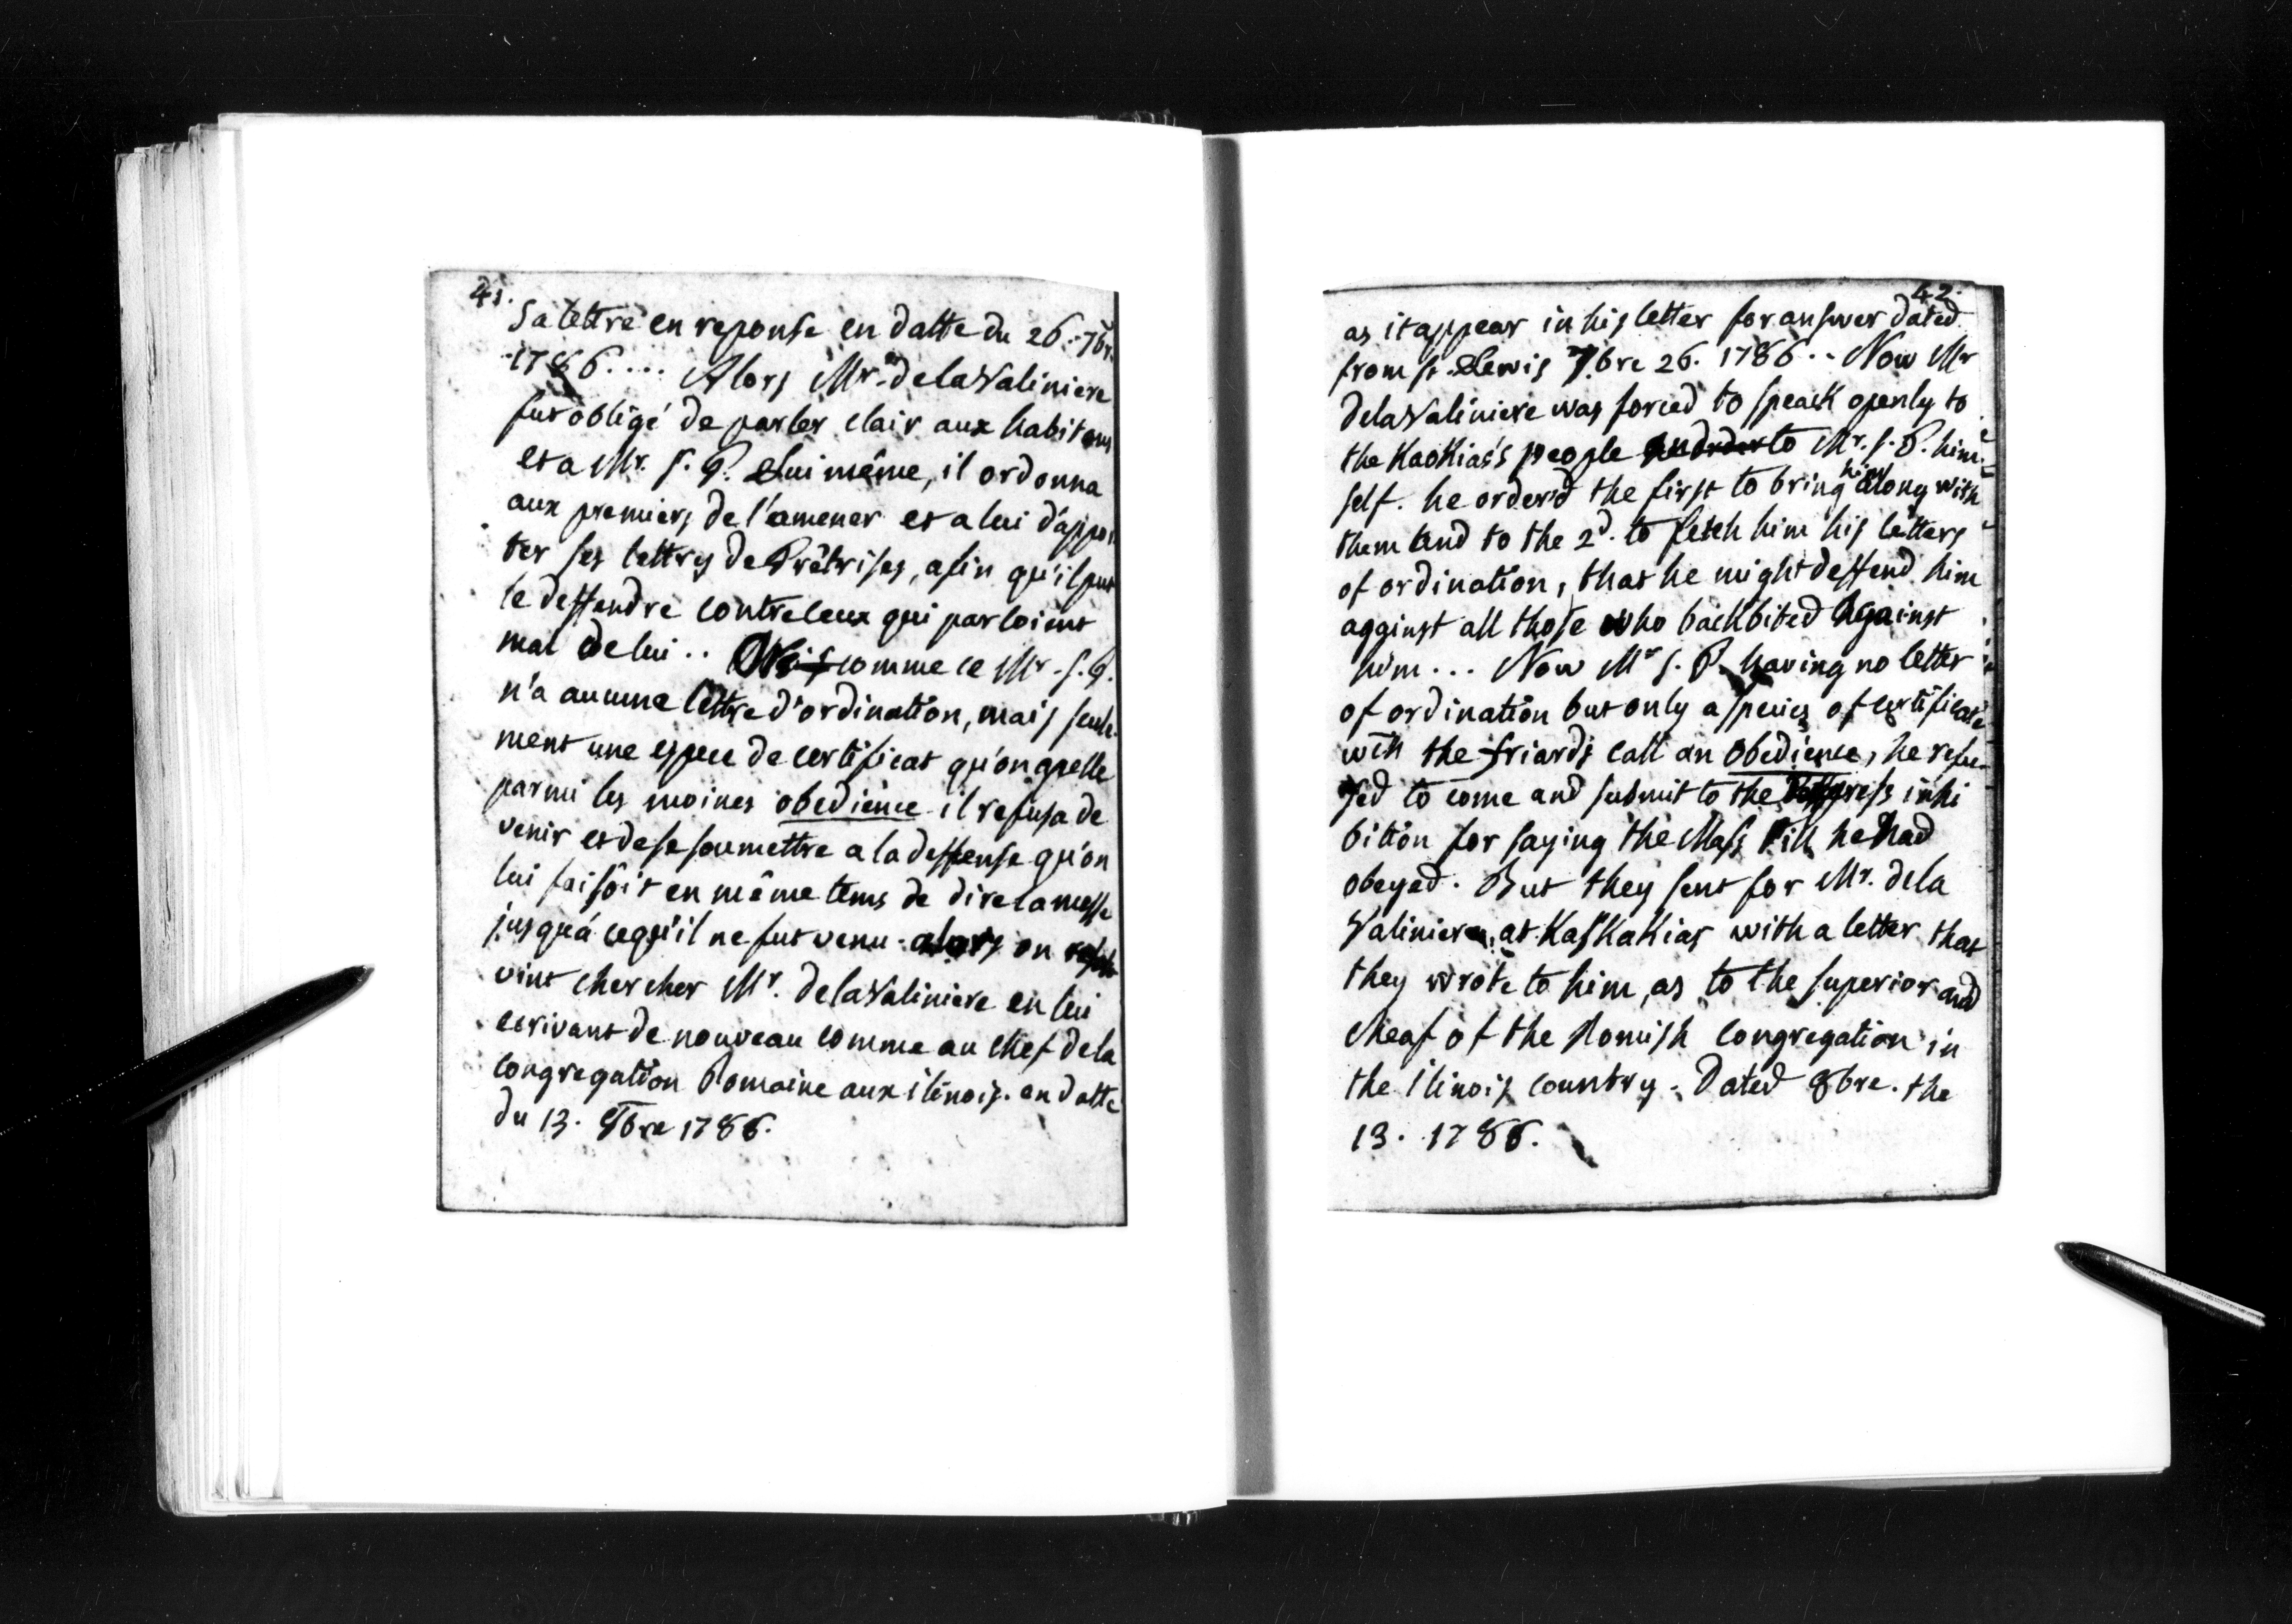 41.
Sa lettre en reponse en datte du 26. 7br.
1786.... Alors Mr. de la Valiniere
fut obligé de parler clair aux habitans
et a Mr. S. P. Lui même, il ordonna
aux premiers de l'amener et a lui d'appor
ter ses lettres de Prêtrises, afin qu'il put
le deffendre contre ceux qui parloient
mal de lui .. comme ce Mr. S. P.
n'a aucune lettre d'ordination, mais seule-
ment une espece de certificat qu'on apelle
parmi les moines obedience il refusa de
venir et de se soumettre a la deffense qu'on
lui faisoit en même tems de dire la messe
jusqu'á ce qu'il ne fut venu. alors on
vint chercher Mr. de la Valiniere en lui
ecrivant de nouveau comme au chef de la
congregation Romaine aux ilinois. en datte
du 13. 8bre 1786.
42.
as it appear in his letter for answer dated
from st. Lewis 7bre 26. 1786.. Now Mr
de la Valiniere was forced to speack openly to
the Kaokias's people to Mr. S. P. him-
self. he order'd the first to bring him along with
them and to the 2d. to fetch him his letters
of ordination, that he might deffend him
against all those who backbited Against
him... Now Mr S. P. having no letter
of ordination but only a species of certificate
wch the friards call an obedience, he refu-
sed to come and submit to the inhi
bition for saying the Mass Till he had
obeyed. But they sent for Mr. de la
Valiniere, at Kaskakias with a letter that
they wrote to him, as to the superior and
cheaf of the Romish congregation in
the ilinois country. Dated 8bre. the
13. 1786.